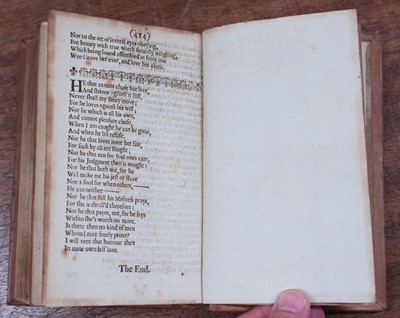 (414)
Nor to the art of several eyes
But beauty with true worth securely weighing,
Which being found assembled in some one
Wee'l leave her ever, and love her alone.
HE that cannot chuse but love,
And strives against it still,
Never shall my fancy move;
For he loves against his will;
Nor he which is all his own,
And cannot pleasure chuse,
When I am caught he can be gone,
And when he list refuse.
Nor he that loves none but fair,
For such by all are sought;
Nor he that can for foul ones care,
For his Judgment then is nought:
Nor he that hath wit, for he
Will make me his jest or slave
Nor a fool for when others, ——
He can neither ——
Nor he that still his Mistress prays,
For she is thrall'd therefore:
Nor he that payes, not, for he says
Within she's worth no more.
Is there then no kind of men
Whom I may freely prove?
I will vent that humour then
In mine own self love.
The End.